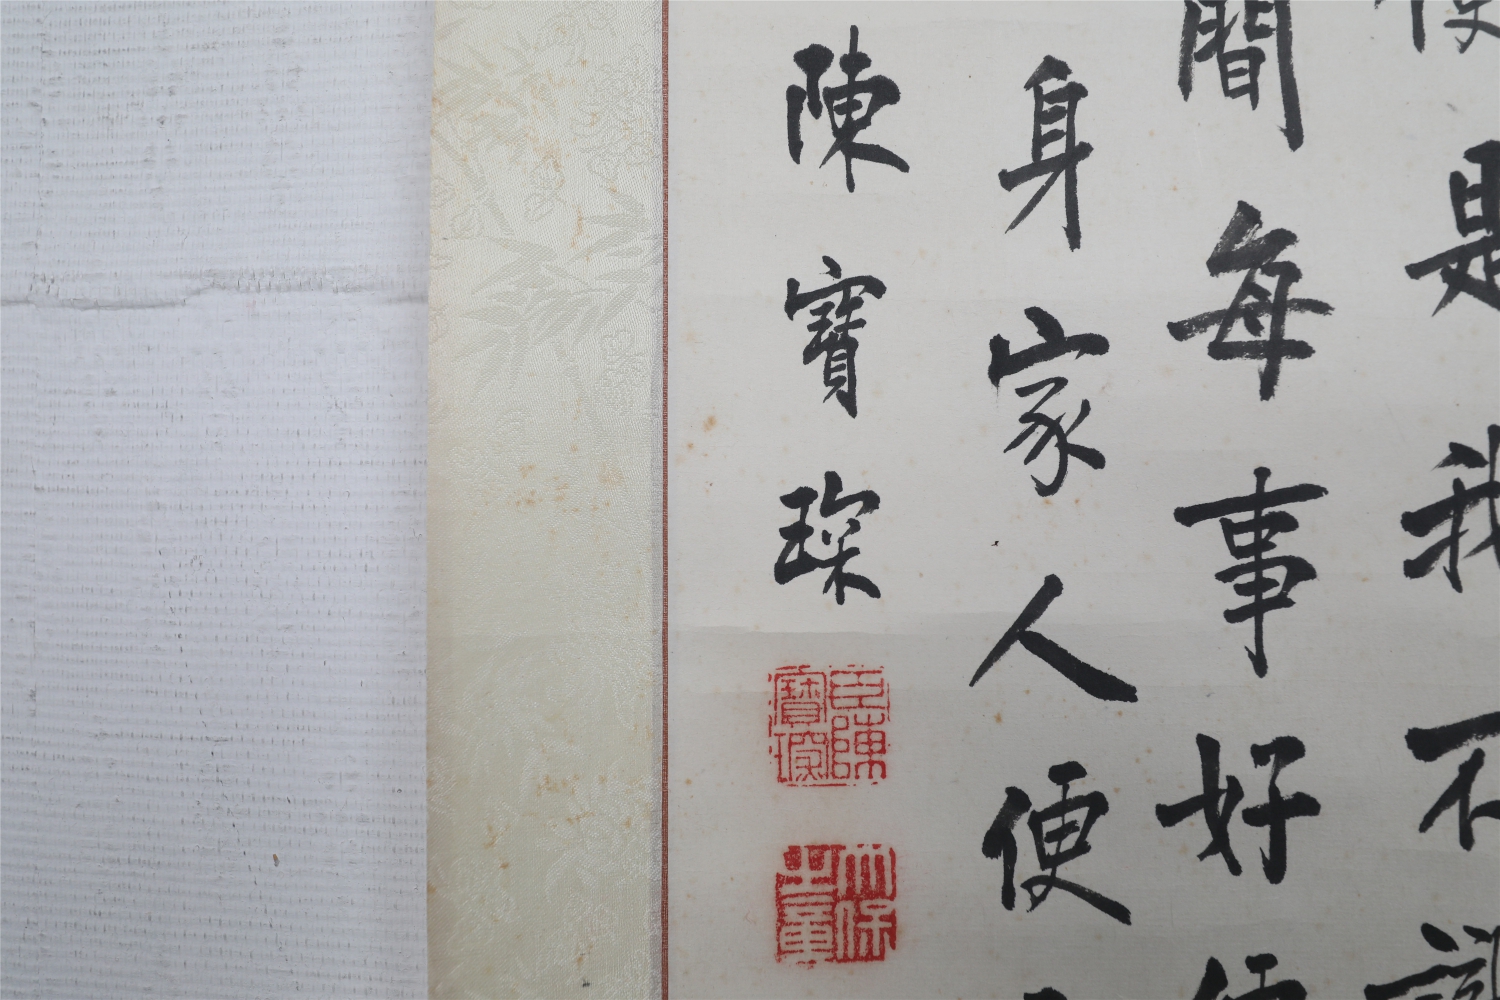 是我不識
間每事好便
身家人便
陳寶琛
臣陳寶琛
太保之章